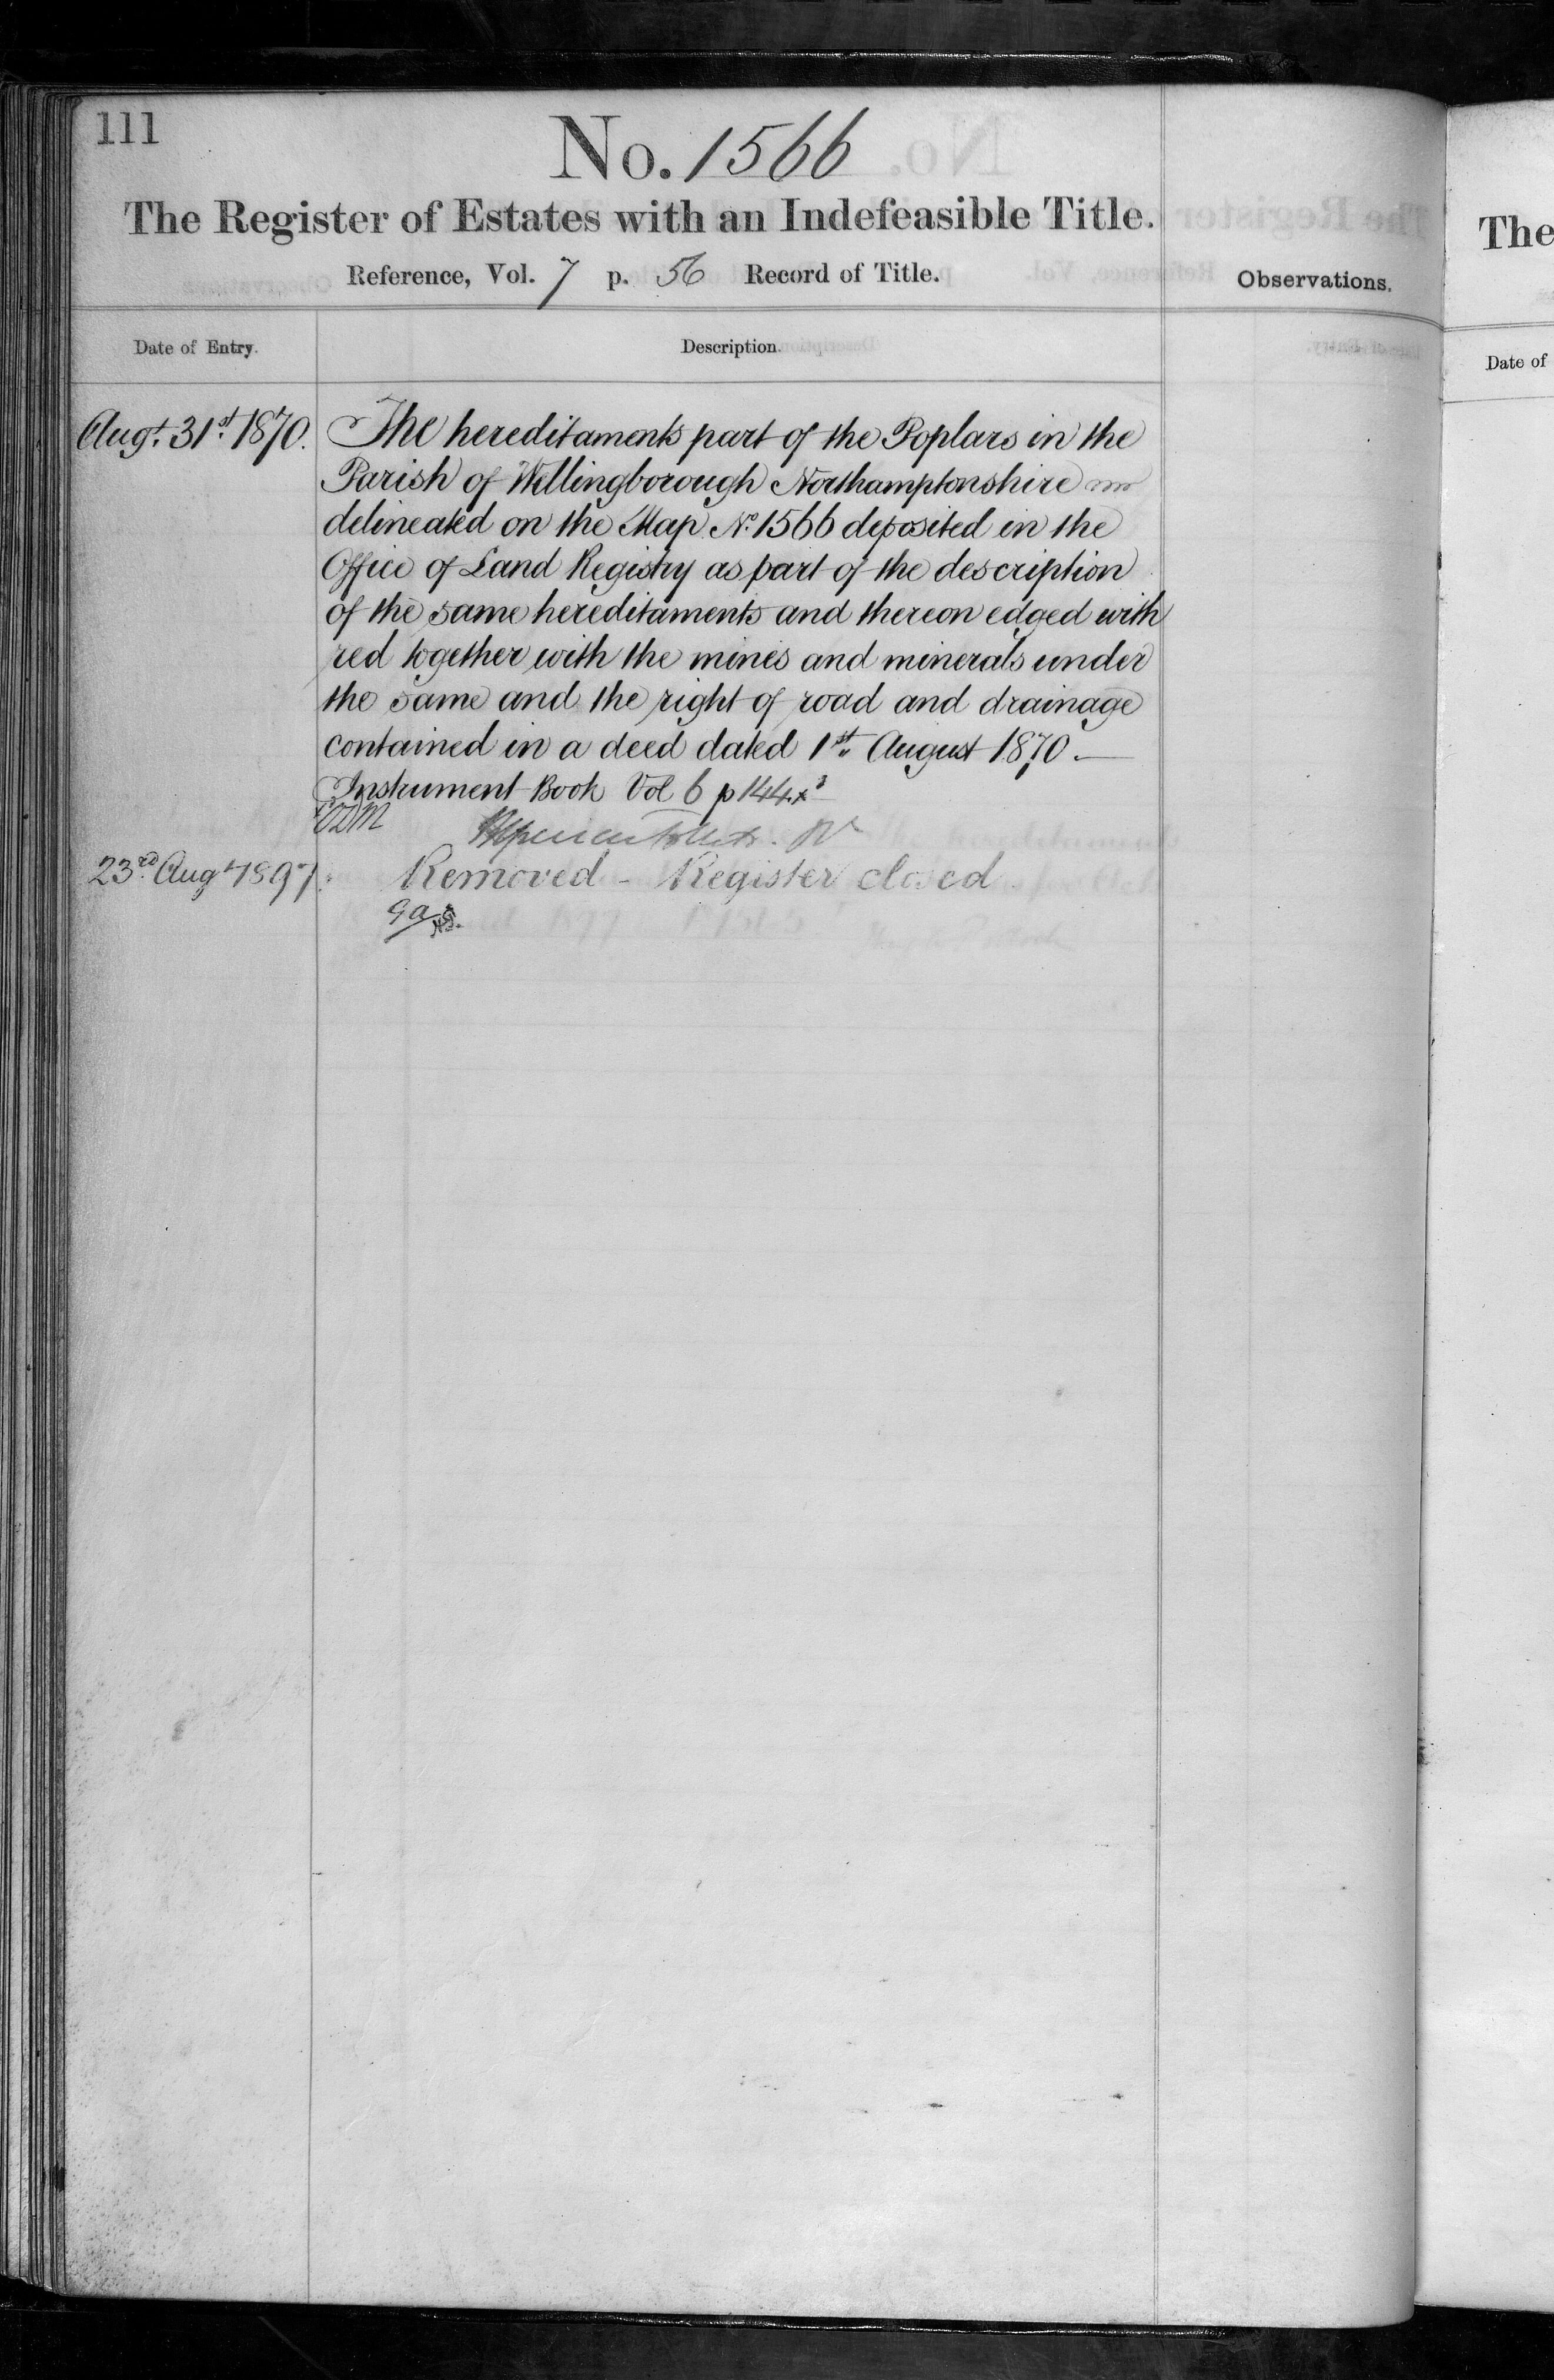 111
No. 1566
The Register of Estates with an Indefeasible Title.
Reference, Vol. 7 p. 56 Record of Title.
Observations.
Date of Entry.
Description.
Augt. 31st. 1870.
The hereditaments part of the Poplars in the
Parish of Wellingborough Northamptonshire
delineated on the Map No. 1566 deposited in the
Office of Land Registry as part of the description
of the same hereditaments and thereon edged with
red together with the mines and minerals under
the same and the right of road and drainage
contained in a deed dated 1st August 1870.—
Instrument Book Vol 6 p 144.
23rd. Augt 1897.
Removed - Register closed
The
Date of